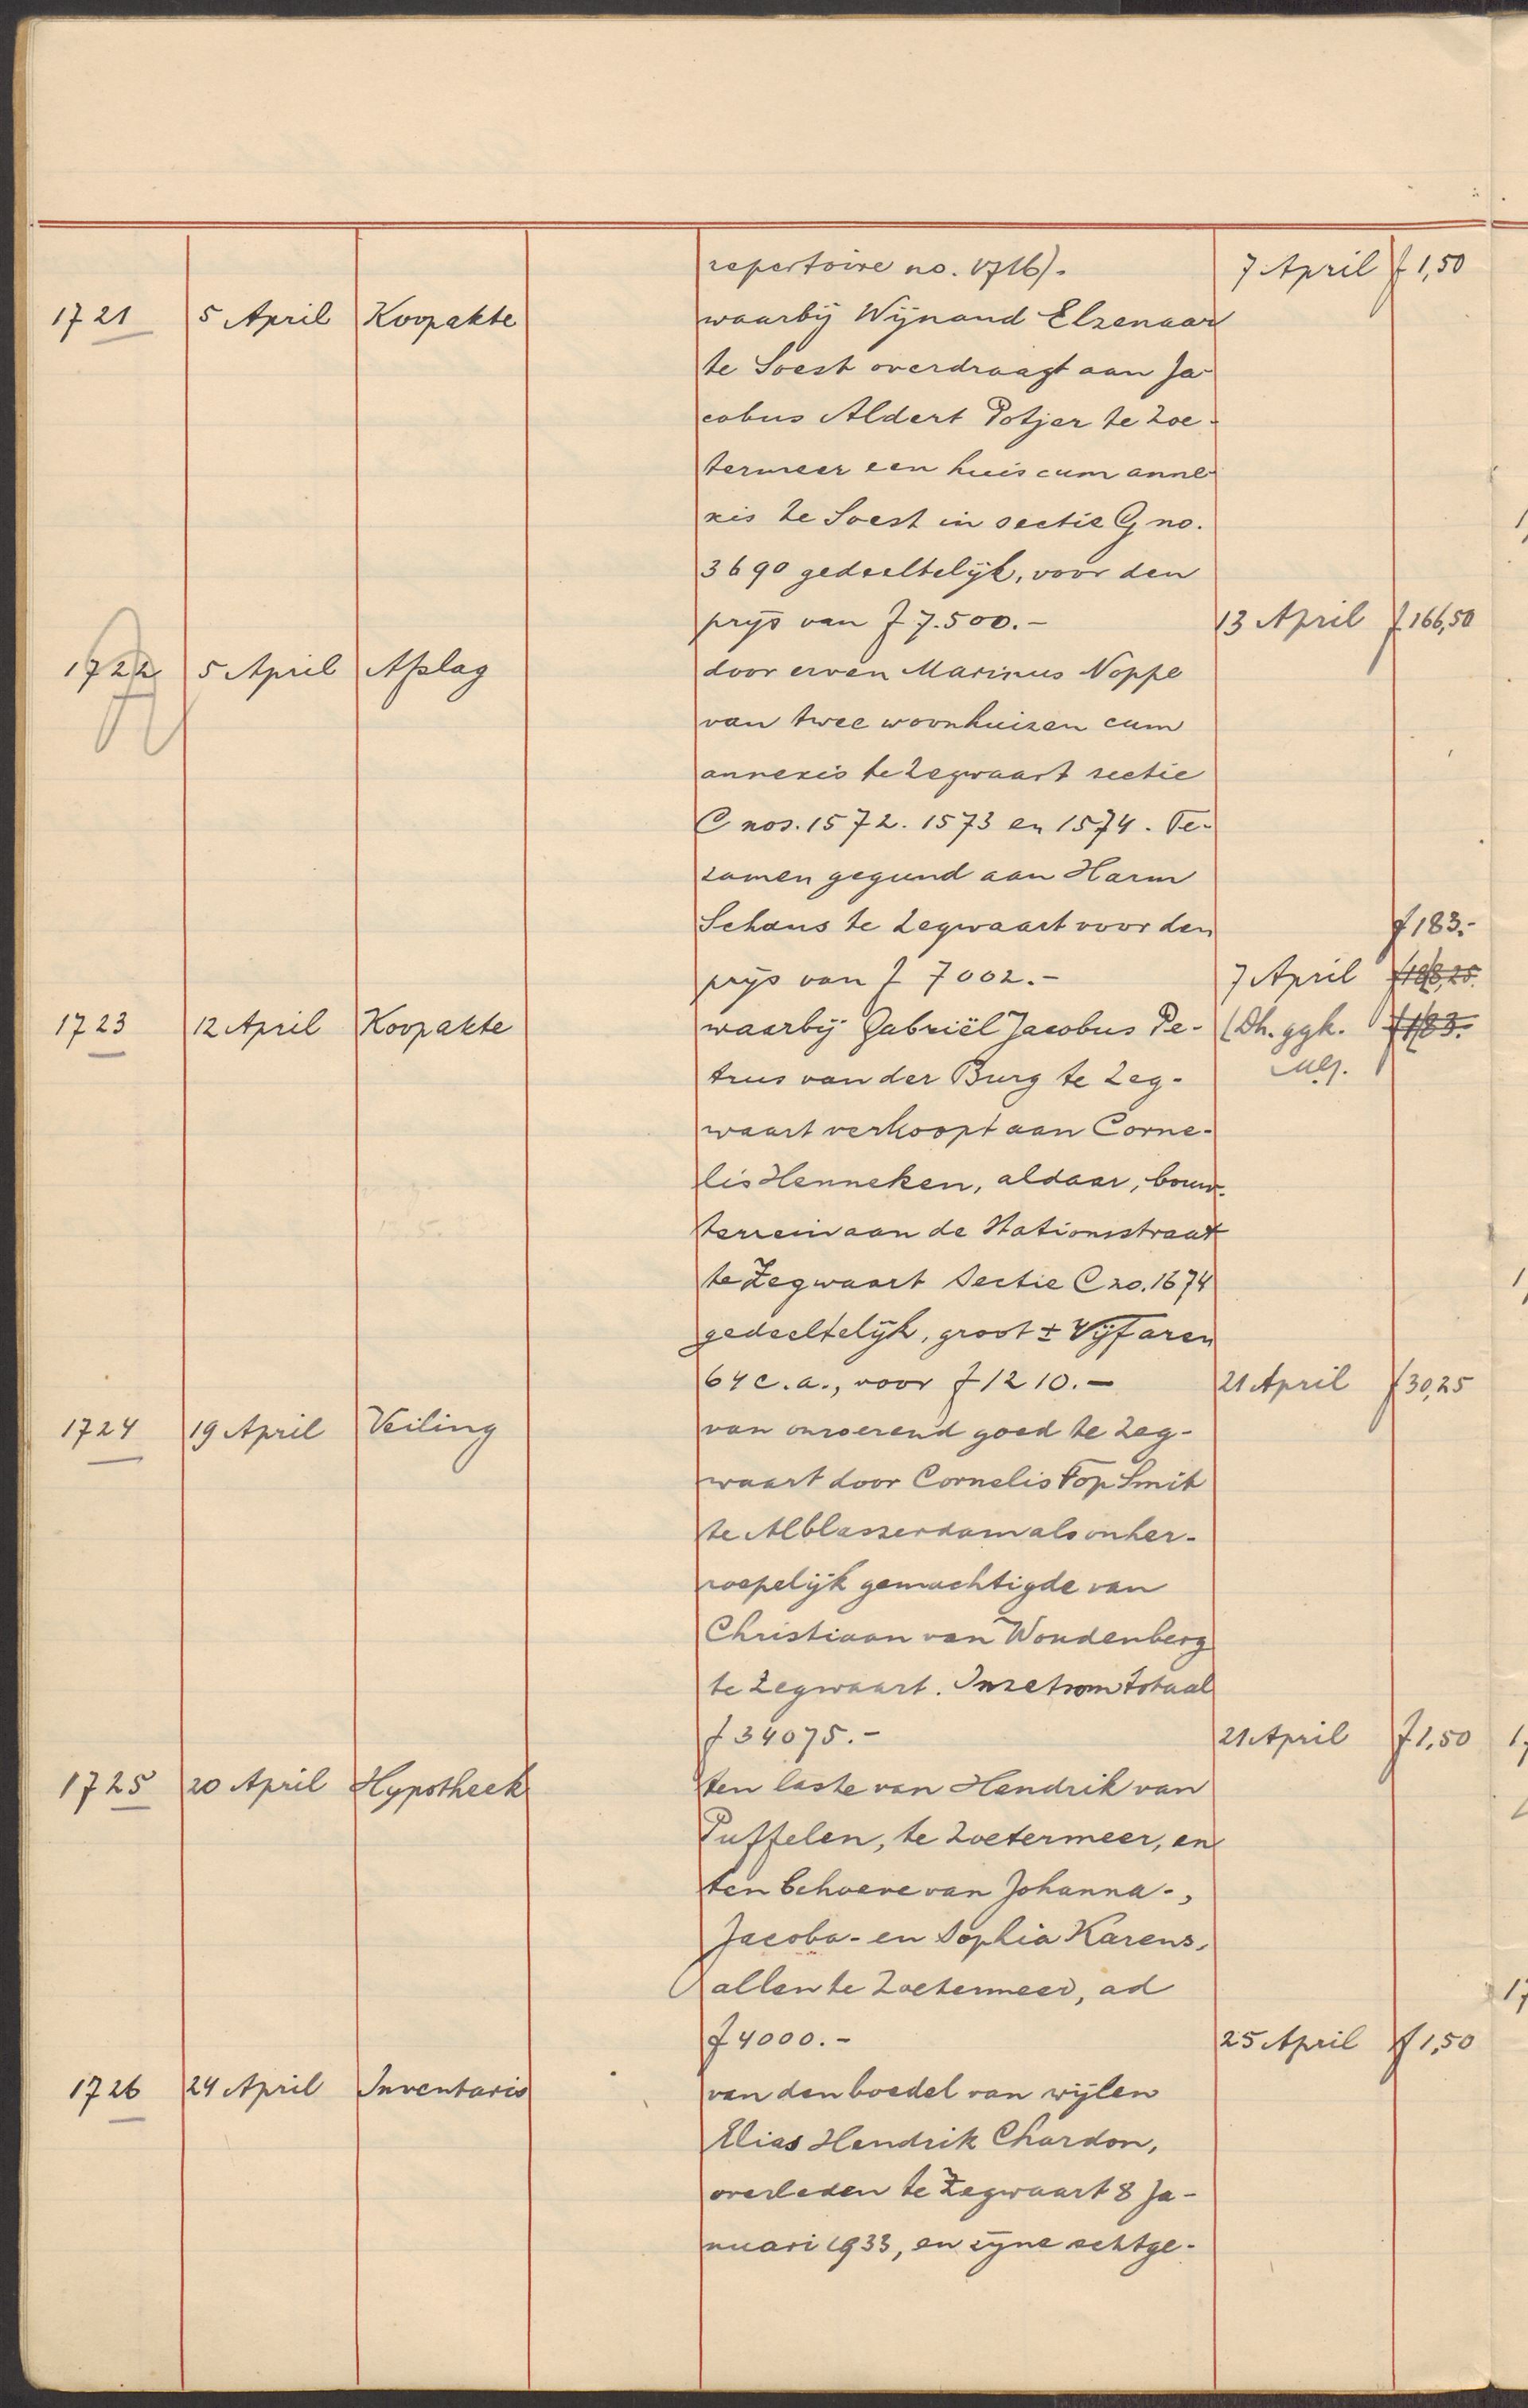 repertoire no. 1716). 7 April f 1,50
1721 5 April Koopakte waarbij Wijnand Elzenaar
te Soest overdraagt aan Ja-
cobus Aldert Potjer te Zoe-
termeer een huis cum anne-
xis te Soest in sectie G no.
3690 gedeeltelijk, voor den
prijs van f 7.500.- 13 April f 166,50
1722 5 April Afslag door erven Marinus Noppe
van twee woonhuizen cum
annexis te Zegwaart sectie
C nos. 1572. 1573 en 1574. Te-
zamen gegund aan Harm
Schans te Zegwaart voor den f 183.-
prijs van f 7002.- 7 April
1723 12 April Koopakte waarbij Gabriël Jacobus Pe- (Dh. ggk. f 183.-
trus van der Burg te Zeg-
waart verkoopt aan Corne-
lis Henneken, aldaar, bouw-
terrein aan de Stationsstraat
te Zegwaart Sectie C no. 1674
gedeeltelijk, groot ± Vijf aren
64 c.a., voor f 1210.- 21 April f 30,25
1724 19 April Veiling van onroerend goed te Zeg-
waart door Cornelis Fop Smit
te Alblasserdam als onher-
roepelijk gemachtigde van
Christiaan van Woudenberg
te Zegwaart. Inzetsom totaal
f 34075.- 21 April f 1,50
1725 20 April Hypotheek ten laste van Hendrik van
Puffelen, te Zoetermeer, en
ten behoeve van Johanna-,
Jacoba- en Sophia Karens,
allen te Zoetermeer, ad
f 4000.- 25 April f 1,50
1726 24 April Inventaris van den boedel van wijlen
Elias Hendrik Chardon,
overleden te Zegwaart 8 Ja-
nuari 1933, en zijne echtge-